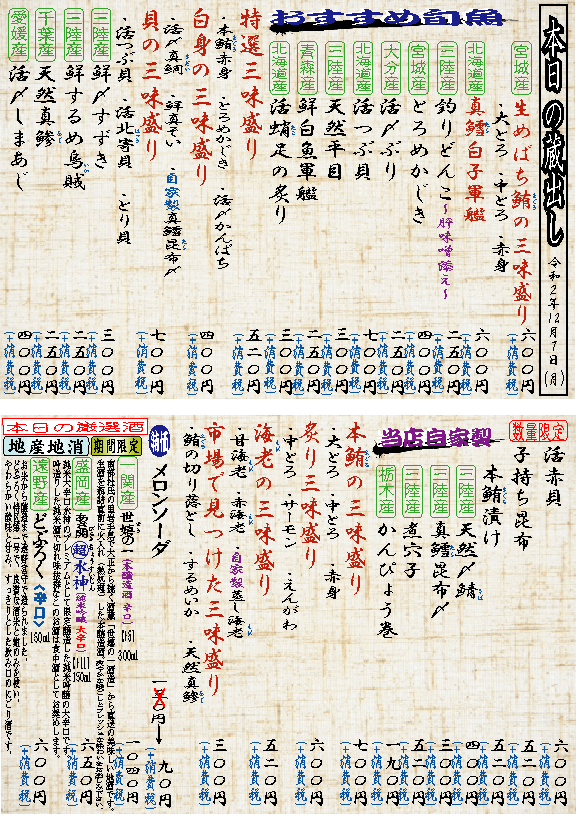 本日の蔵出し 令和2年12月7日(月)
おすすめ旬魚
宮城産 生めばち鮪の三味盛り 六〇〇円(+消費税)
・大とろ ・中とろ ・赤身
北海道産 真鱈白子軍艦 六〇〇円(+消費税)
三陸産 釣りどんこ～肝味噌添え～ 二五〇円(+消費税)
宮城産 とろめかじき 四〇〇円(+消費税)
大分産 活〆ぶり 二五〇円(+消費税)
北海道産 活つぶ貝 七〇〇円(+消費税)
三陸産 天然平目 三五〇円(+消費税)
青森産 鮮白魚軍艦 二五〇円(+消費税)
北海道産 活蛸足の炙り 三〇〇円(+消費税)
特選三味盛り 五二〇円(+消費税)
・本鮪赤身 ・とろめかじき ・活〆かんぱち
白身の三味盛り 四〇〇円(+消費税)
・活〆真鯛 ・鮮真ぞい ・自家製真鱈昆布〆
貝の三味盛り 七〇〇円(+消費税)
・活つぶ貝 ・活北寄貝 ・とり貝
三陸産 鮮〆すずき 三〇〇円(+消費税)
三陸産 鮮するめ烏賊 二五〇円(+消費税)
千葉産 天然真鯵 二五〇円(+消費税)
愛媛産 活〆しまあじ 四〇〇円(+消費税)
数量限定
活赤貝 六〇〇円(+消費税)
子持ち昆布 三〇〇円(+消費税)
本鮪漬け 五二〇円(+消費税)
当店自家製
三陸産 天然〆鯖 四〇〇円(+消費税)
三陸産 真鱈昆布〆 三〇〇円(+消費税)
三陸産 煮穴子 五二〇円(+消費税)
栃木産 かんぴょう巻 一九〇円(+消費税)
本鮪の三味盛り 七〇〇円(+消費税)
・大とろ ・中とろ ・赤身
炙り三味盛り 六〇〇円(+消費税)
・中とろ ・サーモン ・えんがわ
海老の三味盛り 五二〇円(+消費税)
・甘海老 ・赤海老 ・自家製蒸し海老
市場で見つけた三味盛り 三〇〇円(+消費税)
・鮪の切り落とし ・するめいか ・天然真鯵
特価 メロンソーダ 円→九〇円(+消費税)
本日の厳選酒
地産地消 期間限定
一関産 世嬉の一(本醸造酒 辛口) 300ml 一〇四〇円(+消費税)
盛岡産 超水神(純米吟醸 大辛口) 150ml 六五〇円(+消費税)
遠野産 どぶろく<辛口> 180ml 六〇〇円(+消費税)